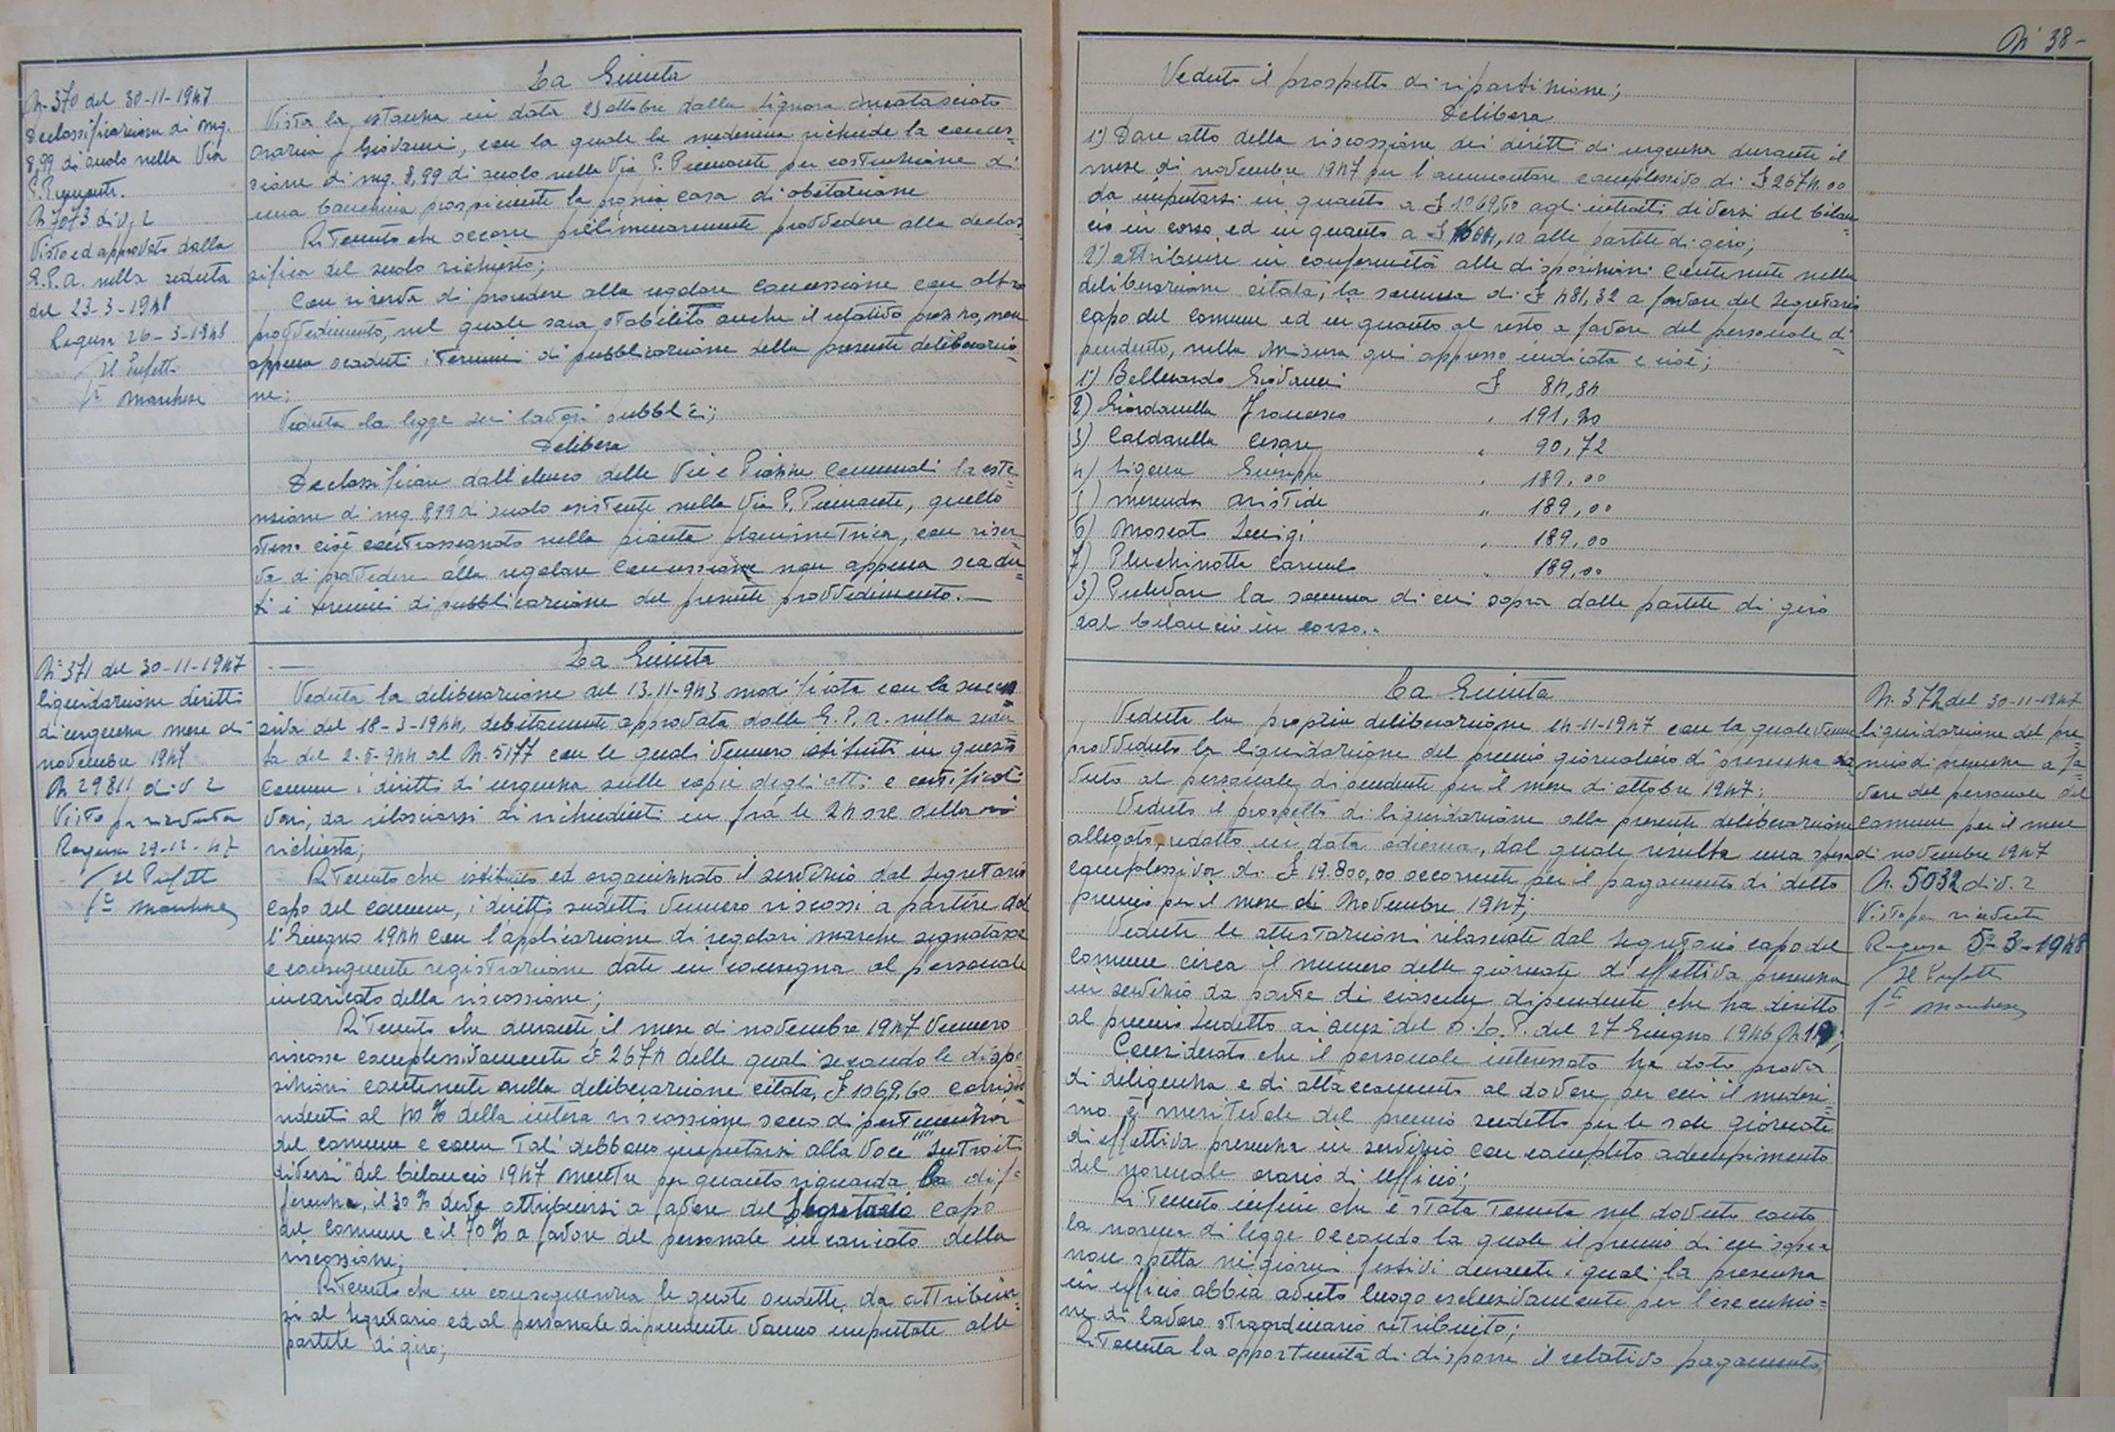 N. 370 del 30-11-1947
Declassificazione di mq.
8,99 di suolo nella Via
P. Piemonte.
N 7073 div. 2
Visto ed approvato dalla
G.P.A. nella seduta
del 23-3-1948
Ragusa 26-3-1948
Il Prefetto
Fto Marchese
La Giunta
Vista la istanza in data 25 ottobre dalla Signora
Maria di Giovanni, con la quale la medesima richiede la conces=
sione di mq. 8,99 di suolo nella Via P. Piemonte per costruzione di
una banchina prospiciente la propria casa di abitazione
Ritenuto che occorre preliminarmente provvedere alla declas=
sifica del suolo richiesto;
Con riserva di procedere alla regolare concessione con altro
provvedimento, nel quale sarà stabilito anche il relativo prezzo, non
appena scaduti i termini di pubblicazione della presente deliberazio=
ne;
Veduta la legge sui lavori pubblici;
Delibera
Declassificare dall'elenco delle Vie e Piazze Comunali la este=
nsione di mq 8,99 di suolo esistente nella Via P. Piemonte, quello
stesso cioè contrassegnato nella pianta planimetrica, con riser=
va di provvedere alla regolare concessione non appena scadu=
ti i termini di pubblicazione del presente provvedimento.—
N. 371 del 30-11-1947
liquidazione diritti
di urgenza mese di
novembre 1947
N. 29811 div 2
Visto per ricevuta
Ragusa 29-12-47
Il Prefetto
Fto Marchese
La Giunta
Veduta la deliberazione del 13-11-943 modificata con la succes
siva del 18-3-1944, debitamente approvata dalla G.P.A. nella sedu
ta del 2-5-944 al N. 5177 con le quali vennero istituiti in questo
Comune i diritti di urgenza sulle copie degli atti e certificati
vari, da rilasciarsi ai richiedenti in fra le 24 ore della
richiesta;
Ritenuto che istituito ed organizzato il servizio dal Segretario
capo del comune, i diritti sudetti vennero riscossi a partire dal
1° Giugno 1944 con l'applicazione di regolari marche segnatasse
e conseguente registrazione date in consegna al personale
incaricato della riscossione;
Ritenuto che durante il mese di novembre 1947 vennero
riscosse complessivamente £ 2674 delle quali secondo le dispo
sizioni contenute nella deliberazione citata, £ 1069,60 corrispo
ndenti al 40% della intera riscossione sono di pertinenza
del comune e come tali debbono imputarsi alla voce "Introiti
diversi" del bilancio 1947 mentre per quanto riguarda la dif=
ferenza, il 30% deve attribuirsi a favore del Segretario Capo
del Comune e il 70% a favore del personale incaricato della
riscossione;
Ritenuto che in conseguenza le quote sudette, da attribuir=
si al Segretario ed al personale dipendente vanno imputate alle
partite di giro;
N° 38-
Veduto il prospetto di ripartizione;
Delibera
1°) Dare atto della riscossione dei diritti di urgenza durante il
mese di novembre 1947 per l'ammontare complessivo di £ 2674,00
da imputarsi in quanto a £ 1069,60 agli introiti diversi del bilan
cio in corso, ed in quanto a £ ,10 alle partite di giro;
2°) attribuire in conformità alle disposizioni contenute nella
deliberazione citata, la somma di £ 481,32 a favore del Segretario
capo del comune ed in quanto al resto a favore del personale di=
pendente, nella misura qui appresso indicata e cioè;
1°) Belluardo Giovanni £ 84,84
2) Giordanella Francesco " 191,20
3) Caldarella Cesare " 90,72
4) Ligama Giuseppe " 189,00
5) Merenda Aristide " 189,00
6) Moscato Luigi " 189,00
7) Pluchinotta Carmelo " 189,00
3) Prelevare la somma di cui sopra dalle partite di giro
dal bilancio in corso..
La Giunta
Veduta la propria deliberazione 14-11-1947 con la quale venne
provveduto la liquidazione del premio giornaliero di presenza do
vuto al personale dipendente per il mese di ottobre 1947;
Veduto il prospetto di liquidazione alla presente deliberazione
allegato, redatto in data odierna, dal quale risulta una spesa
complessiva di £ 19.800,00 occorrente per il pagamento di detto
premio per il mese di Novembre 1947;
Vedute le attestazioni rilasciate dal Segretario capo del
comune circa il numero delle giornate di effettiva presenza
in servizio da parte di ciascun dipendente che ha diritto
al premio sudetto ai sensi del D.L.P. del 27 Giugno 1946 N 19;
Considerato che il personale interessato ha dato prova
di diligenza e di attaccamento al dovere per cui il medesi=
mo è meritevole del premio sudetto per le sole giornate
di effettiva presenza in servizio con completo adempimento
del normale orario di ufficio;
Ritenuto infine che è stata tenuta nel dovuto conto
la norma di legge secondo la quale il premio di cui sopra
non spetta nei giorni festivi durante i quali la presenza
in ufficio abbia avuto luogo esclusivamente per l'esecuzio=
ne di lavoro straordinario retribuito;
Ritenuta la opportunità di disporre il relativo pagamento;
N. 372 del 30-11-1947
liquidazione del pre=
mio di presenza a fa=
vore del personale del
comune per il mese
di novembre 1947
N. 5032 div. 2
Visto per ricevuta
Ragusa 5-3-1948
Il Prefetto
Fto Marchese